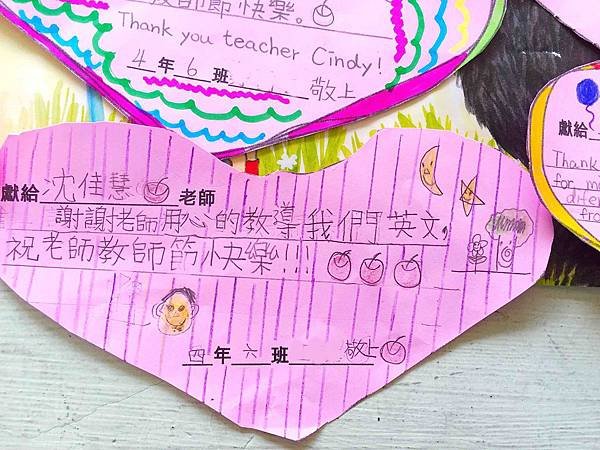 教師節快樂。
Thank you teacher Cindy!
4年6班
敬上
獻給
Thank
for
from
獻給沈佳慧老師
謝謝老師用心的教導我們英文,
祝老師教師節快樂!!!
四年六班 敬上